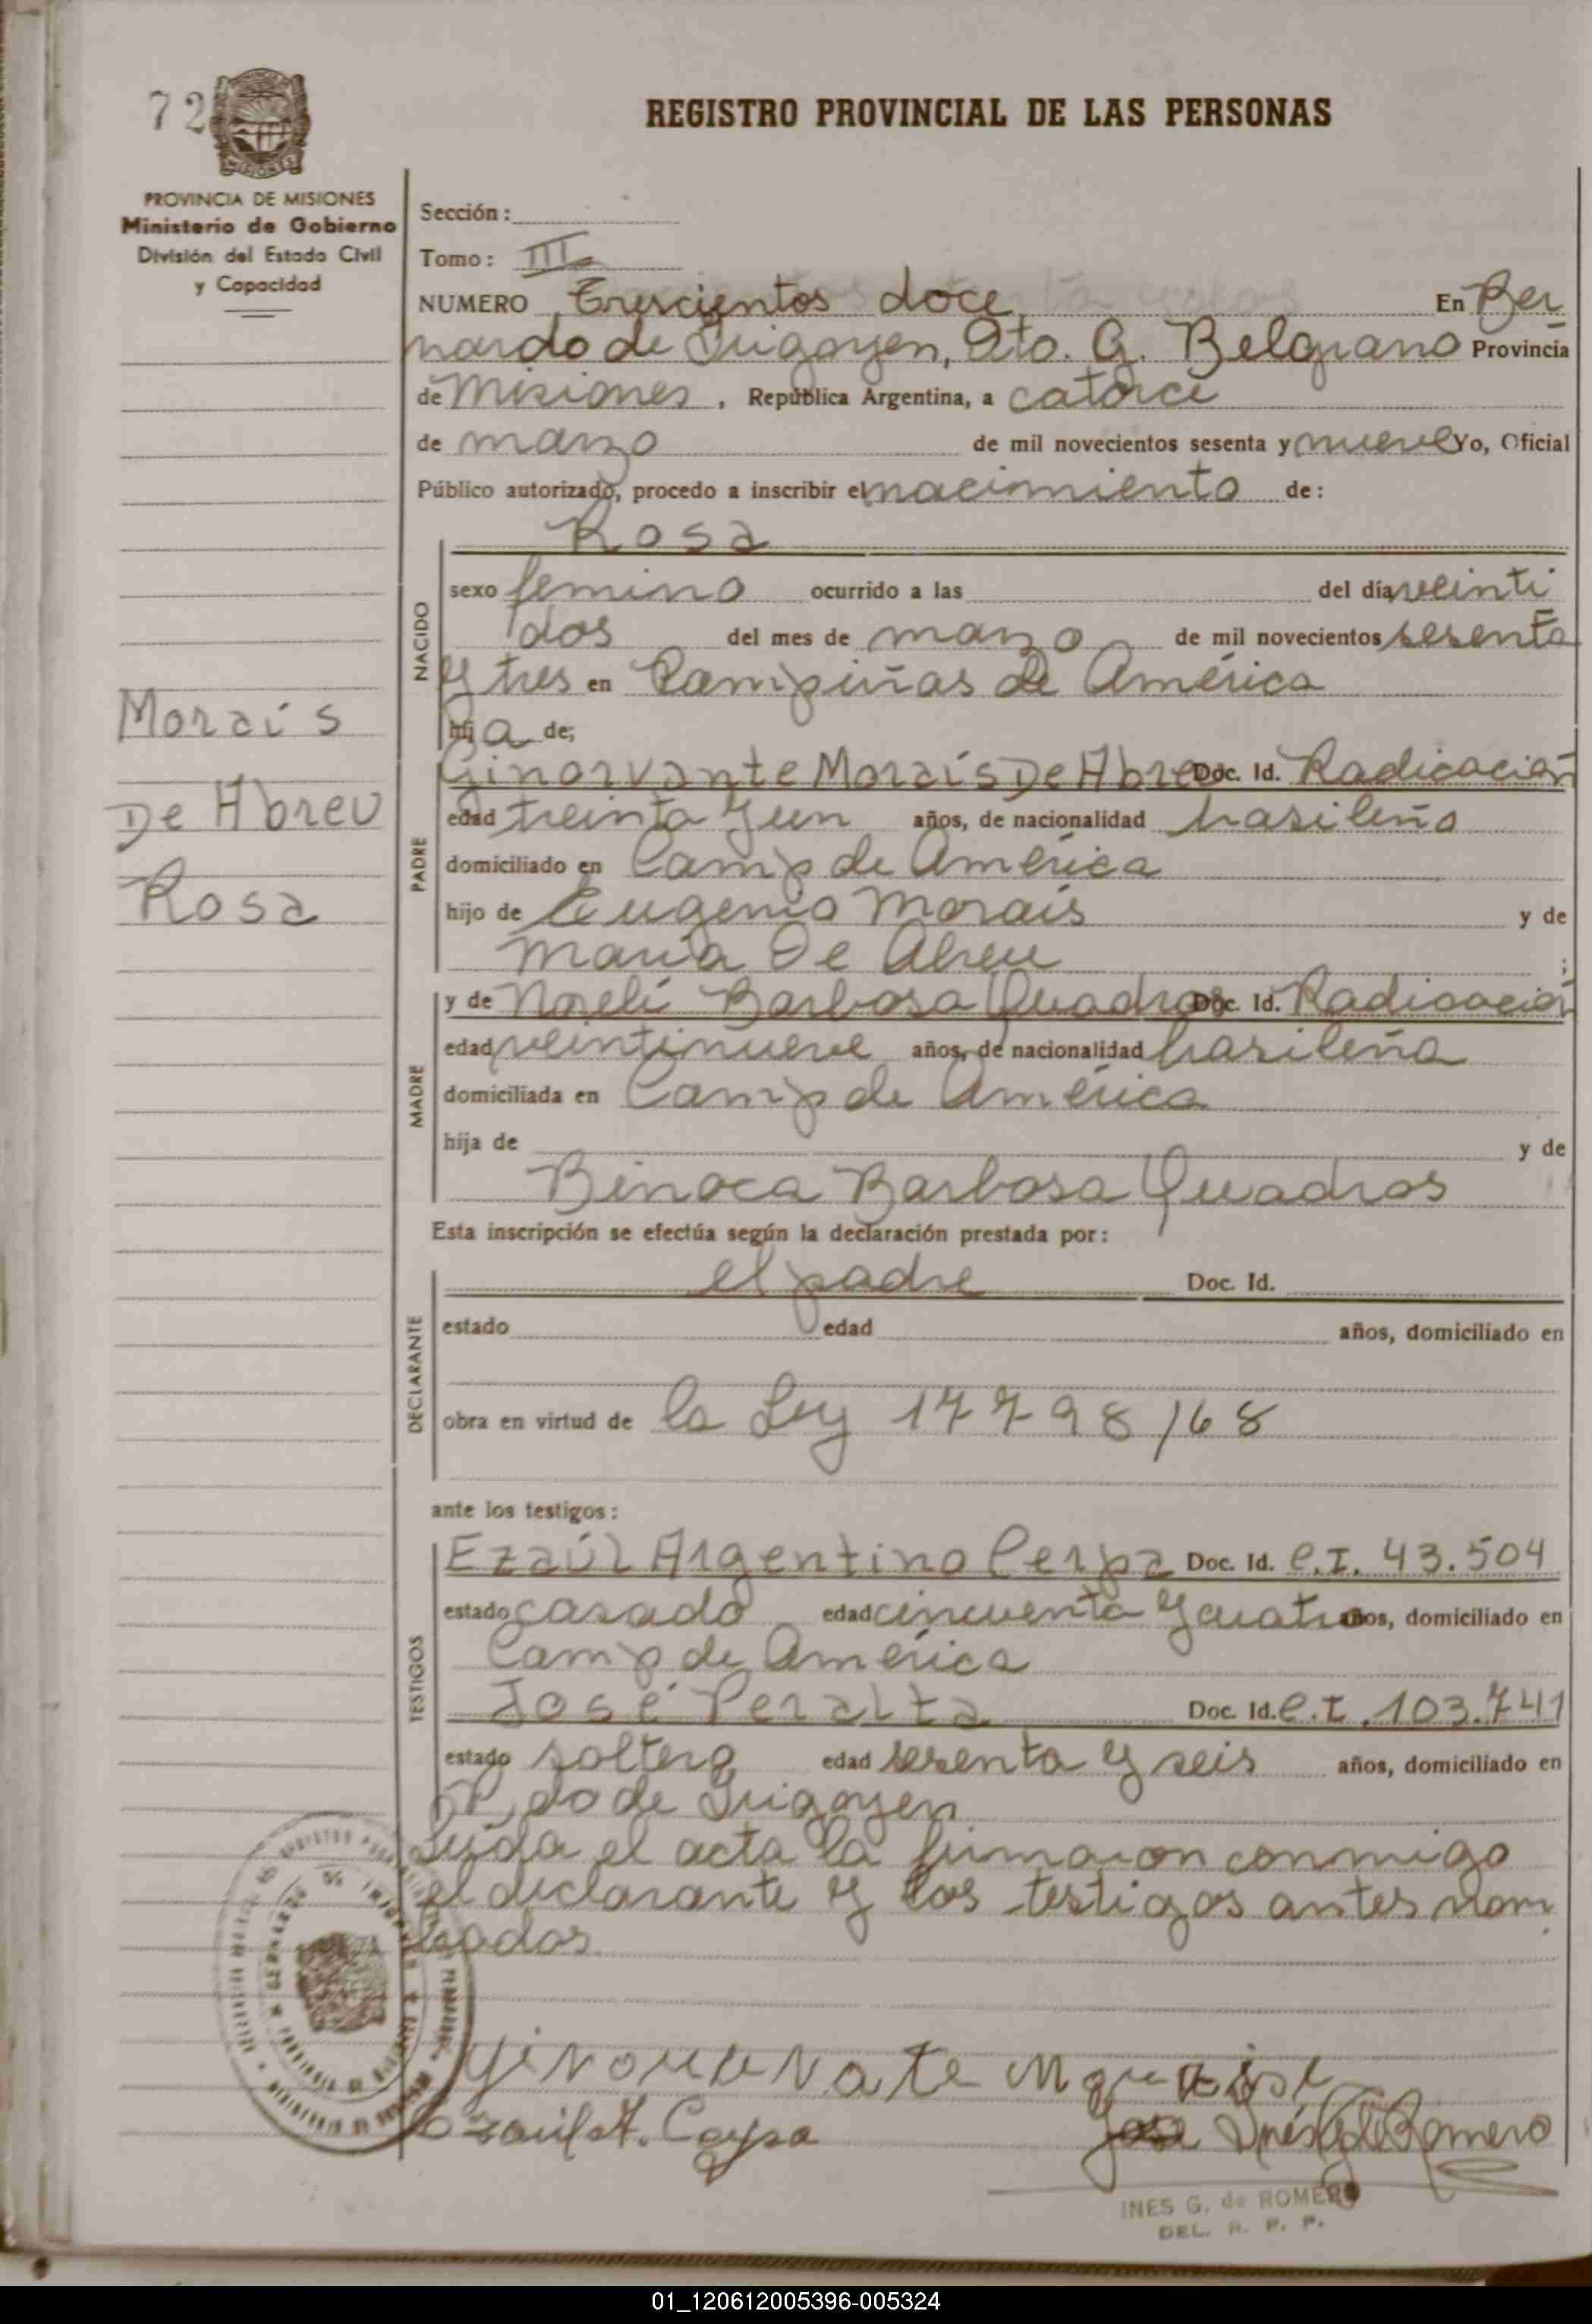 72
MISIONES
PROVINCIA DE MISIONES
Ministerio de Gobierno
División del Estado Civil
y Capacidad
REGISTRO PROVINCIAL DE LAS PERSONAS
Sección:
Tomo: III
NUMERO Trescientos doce En Ber
nardo de Irigoyen, Dto. G. Belgrano Provincia
de Misiones, República Argentina, a catorce
de marzo de mil novecientos sesenta y nueve Yo, Oficial
Público autorizado, procedo a inscribir el nacimiento de:
Rosa
NACIDO
sexo femino ocurrido a las del día veinti
dos del mes de marzo de mil novecientos sesenta
y tres en Campiñas de América
hija de;
Morais
De Abreu
Rosa
PADRE
Ginorvante Morais De Abreu Doc. Id. Radicación
edad treinta y un años, de nacionalidad brasileño
domiciliado en Camp de América
hijo de Eugenio Morais y de
María De Abreu ;
MADRE
y de Noreli Barbosa Quadros Doc. Id. Radicación
edad veintinueve años, de nacionalidad brasileña
domiciliada en Camp de América
hija de y de
Binoca Barbosa Quadros
Esta inscripción se efectúa según la declaración prestada por:
DECLARANTE
el padre Doc. Id.
estado edad años, domiciliado en
obra en virtud de la Ley 17798/68
ante los testigos:
TESTIGOS
Ezaúl Argentino Cerpa Doc. Id. C.I. 43.504
estado casado edad cincuenta y cuatro años, domiciliado en
Camp de América
José Peralta Doc. Id. C.I. 103.741
estado soltero edad sesenta y seis años, domiciliado en
B do de Irigoyen
Leida el acta la firmaron conmigo
el declarante y los testigos antes nom
brados.
Ezaul A. Cerpa
Jose Inés G de Romero
INES G. de ROMERO
DEL. R. P. P.
01_120612005396-005324